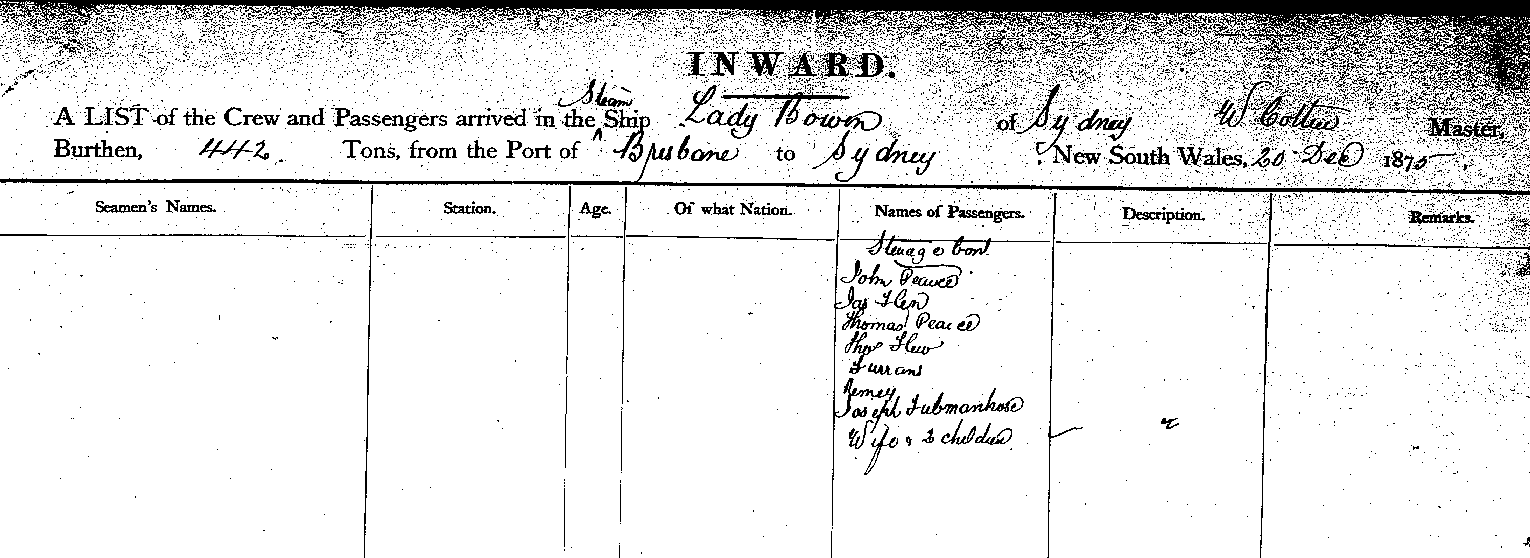 INWARD.
Steam
A LIST of the Crew and Passengers arrived in the ^ Ship Lady Bowen of Sydney W Cottier Master,
Burthen, 442. Tons, from the Port of Brisbane to Sydney : New South Wales, 20 Dec 1875.
Seamen's Names. Station. Age. Of what Nation. Names of Passengers. Description. Remarks.
Steerage Cont
John Pearce
Jas Flew
Thomas Pearce
Thos Flew
Furrans
Joseph
Wife & 2 children